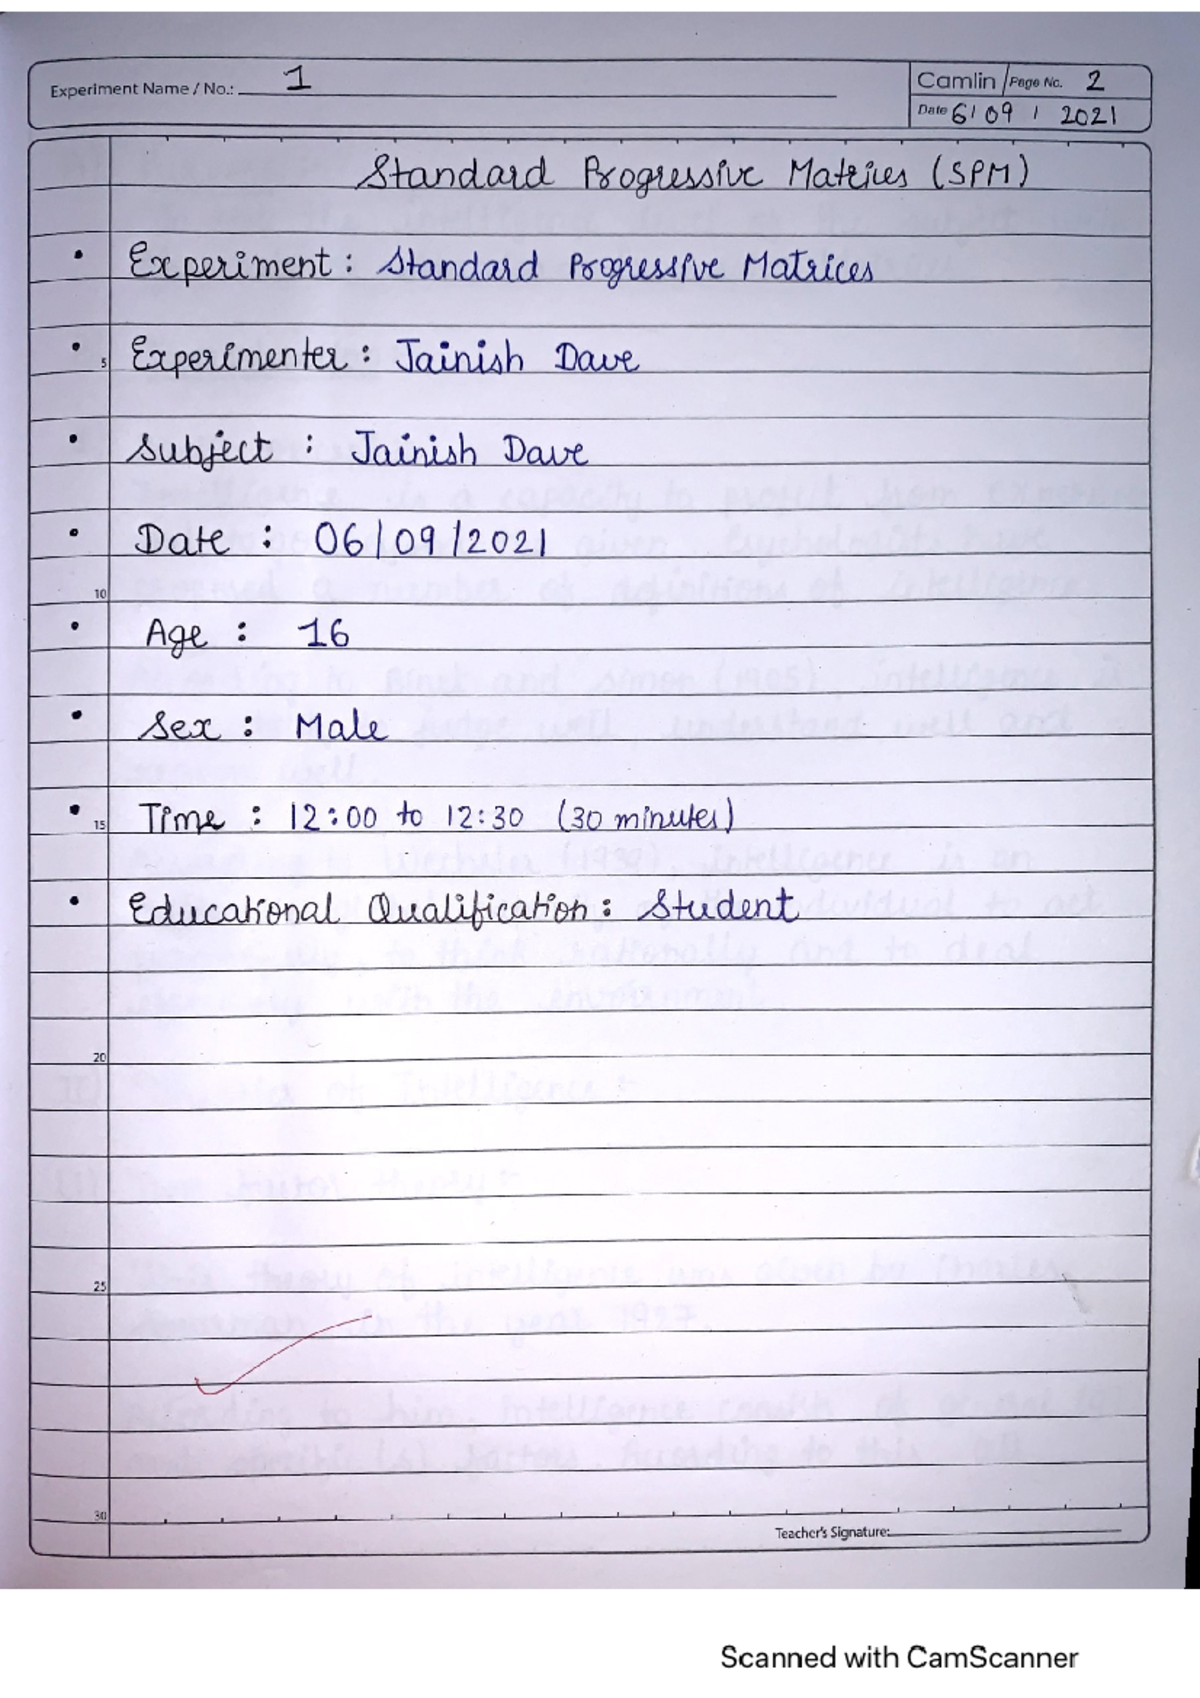 Experiment Name / No.: 1
Camlin Page No. 2
Date 6/09/2021
Standard Progressive Matrices (SPM)
• Experiment : Standard Progressive Matrices
5
• Experimenter : Jainish Dave
• Subject : Jainish Dave
• Date : 06/09/2021
10
• Age : 16
• Sex : Male
15
• Time : 12:00 to 12:30 (30 minutes)
• Educational Qualification : Student
20
25
30
Teacher's Signature:
Scanned with CamScanner